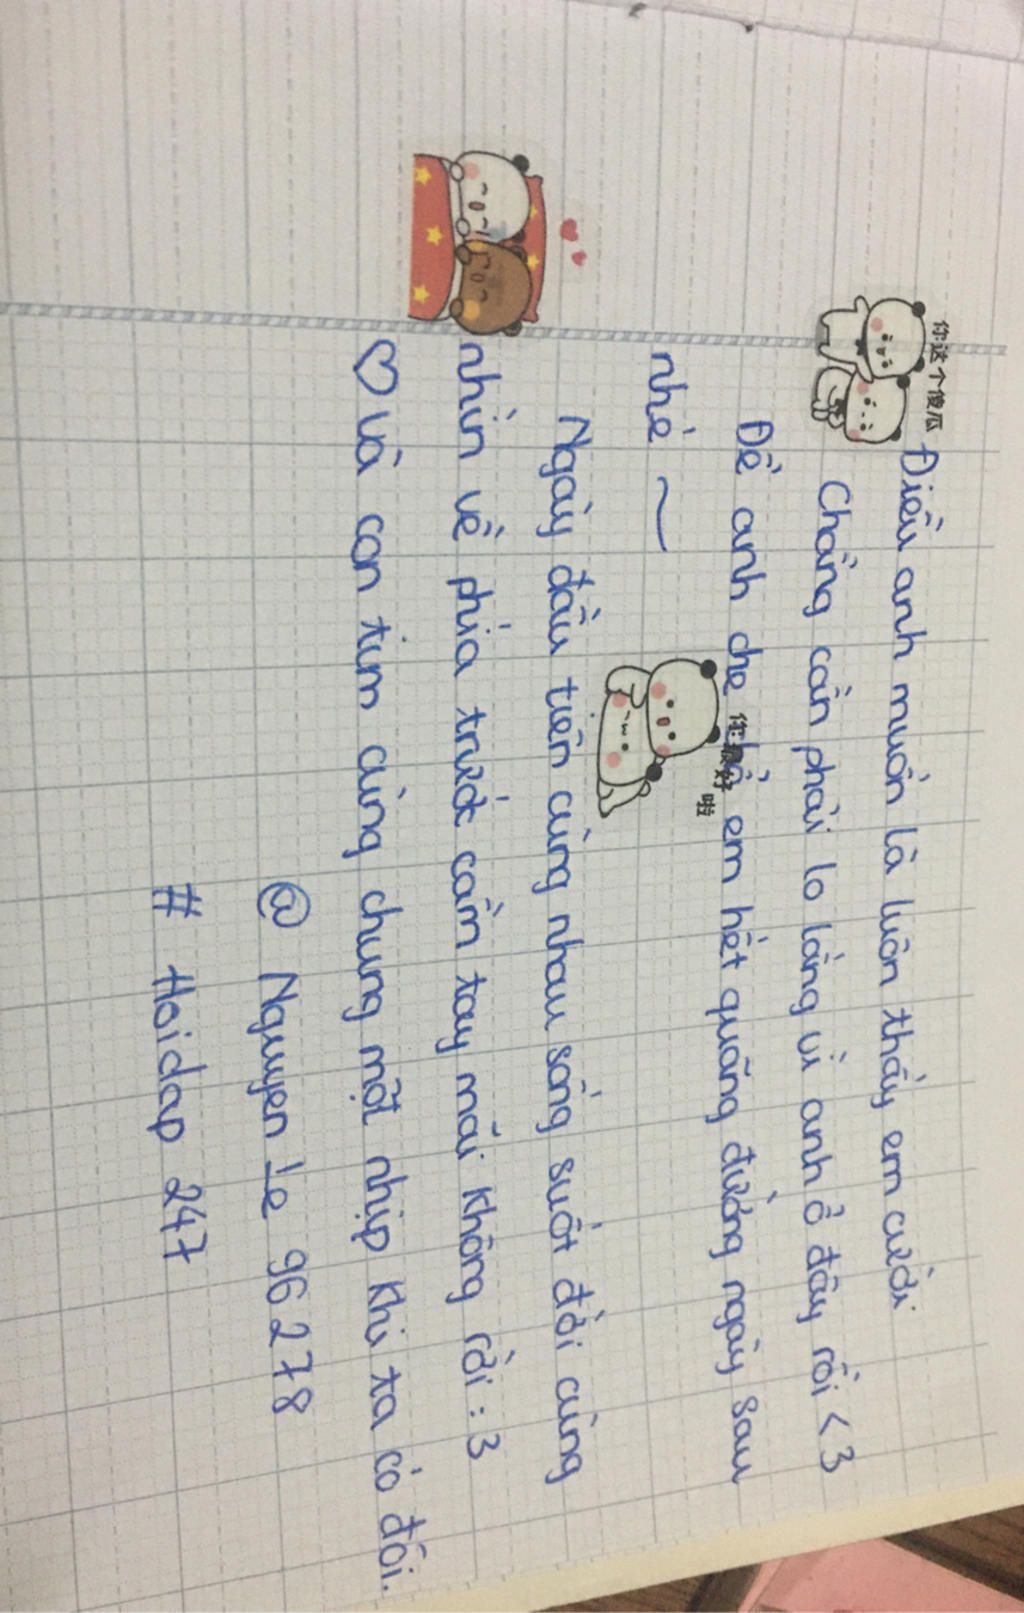 你这个傻瓜
Điều anh muốn là luôn thấy em cười
Chẳng cần phải lo lắng vì anh ở đây rồi <3
Để anh che chở em hết quãng đường ngày sau
你最好啦
nhé ~
Ngày đầu tiên cùng nhau sống suốt đời cùng
nhìn về phía trước cầm tay mãi không rời :3
♡ và con tim cùng chung một nhịp khi ta có đôi.
@ Nguyen Le 96278
# Hoidap 247